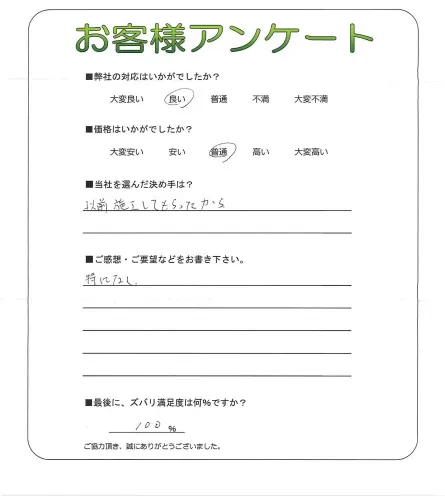 お客様アンケート
■弊社の対応はいかがでしたか?
大変良い 良い 普通 不満 大変不満
■価格はいかがでしたか?
大変安い 安い 普通 高い 大変高い
■当社を選んだ決め手は?
以前施工してもらったから
■ご感想・ご要望などをお書き下さい。
特になし
■最後に、ズバリ満足度は何%ですか?
100 %
ご協力頂き、誠にありがとうございました。